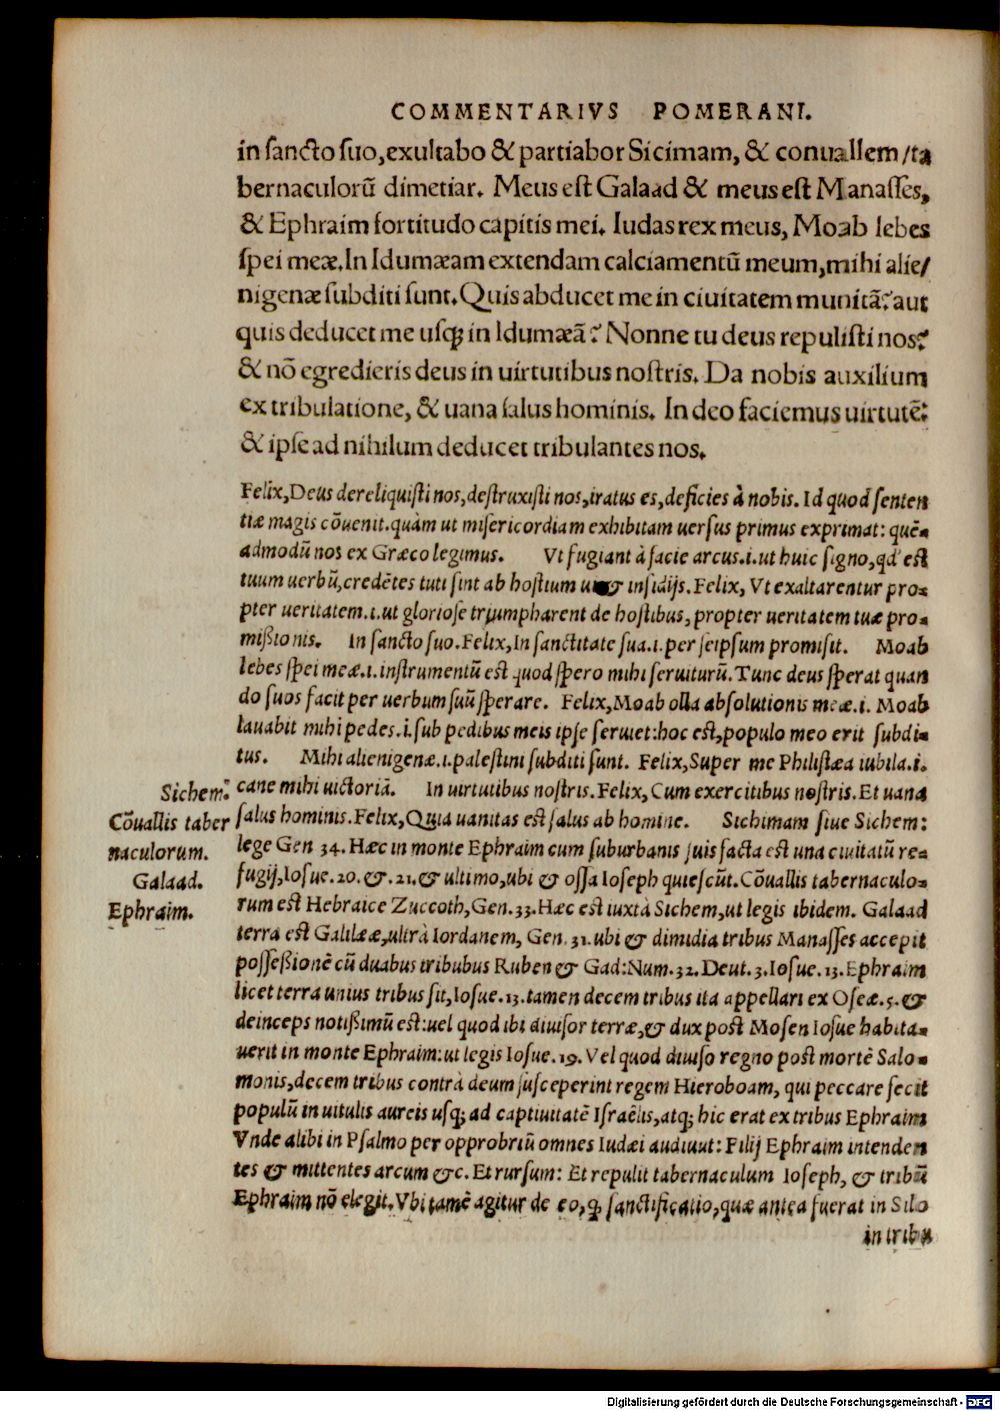 COMMENTARIVS POMERANI.
in ſancto ſuo,exultabo & partiabor Sicimam, & conuallem/ta
bernaculorũ dimetiar. Meus eſt Galaad & meus eſt Manaſſes,
& Ephraim fortitudo capitis mei. Iudas rex meus, Moab lebes
ſpei meæ.In Idumæam extendam calciamentũ meum,mihi alie/
nigenæ ſubditi ſunt.Quis abducet me in ciuitatem munitã?aut
quis deducet me uſq; in Idumæã? Nonne tu deus repuliſti nos?
& nõ egredieris deus in uirtutibus noſtris. Da nobis auxilium
ex tribulatione, & uana ſalus hominis. In deo faciemus uirtutẽ:
& ipſe ad nihilum deducet tribulantes nos.
Felix,Deus dereliquiſti nos,deſtruxiſti nos,iratus es,deficies à nobis. Id quod ſenten
tiæ magis cõuenit.quàm ut miſericordiam exhibitam uerſus primus exprimat: quẽ=
admodũ nos ex Græco legimus. Vt fugiant à facie arcus.i.ut huic ſigno,qd' eſt
tuum uerbũ,credẽtes tuti ſint ab hoſtium ui & inſidijs. Felix, Vt exaltarentur pro=
pter ueritatem.i.ut glorioſe triumpharent de hoſtibus, propter ueritatem tuæ pro=
mißionis. In ſancto ſuo.Felix,In ſanctitate ſua.i.per ſeipſum promiſit. Moab
lebes ſpei meæ.i.inſtrumentũ eſt quod ſpero mihi ſeruiturũ.Tunc deus ſperat quan
do ſuos facit per uerbum ſuũ ſperare. Felix,Moab olla abſolutionis meæ.i. Moab
lauabit mihi pedes.i.ſub pedibus meis ipſe ſeruiet:hoc eſt,populo meo erit ſubdi=
tus. Mihi alienigenæ.i.paleſtini ſubditi ſunt. Felix,Super me Philiſtæa iubila.i.
cane mihi uictoriã. In uirtutibus noſtris.Felix,Cum exercitibus noſtris.Et uana
ſalus hominis.Felix,Quia uanitas eſt ſalus ab homine. Sichimam ſiue Sichem:
lege Gen 34. Hæc in monte Ephraim cum ſuburbanis ſuis facta eſt una ciuitatũ re=
fugij,Ioſue.20.&.21.& ultimo,ubi & oſſa Ioſeph quieſcũt.Cõuallis tabernaculo=
rum eſt Hebraice Zuccoth,Gen.33.Hæc eſt iuxtà Sichem,ut legis ibidem. Galaad
terra eſt Galilææ,ultrà Iordanem, Gen. 31. ubi & dimidia tribus Manaſſes accepit
poſſeßionẽ cũ duabus tribubus Ruben & Gad:Num.32.Deut.3.Ioſue.13.Ephraim
licet terra unius tribus ſit,Ioſue.13.tamen decem tribus ita appellari ex Oſeæ.5.&
deinceps notißimũ eſt:uel quod ibi diuiſor terræ,& dux poſt Moſen Ioſue habita=
uerit in monte Ephraim:ut legis Ioſue.19. Vel quod diuiſo regno poſt mortẽ Salo=
monis,decem tribus contrà deum ſuſceperint regem Hieroboam, qui peccare fecit
populũ in uitulis aureis uſq; ad captiuitatẽ Iſraëlis,atq; hic erat ex tribus Ephraim
Vnde alibi in Pſalmo per opprobriũ omnes Iudæi audiuut: Filij Ephraim intenden
tes & mittentes arcum &c. Et rurſum: Et repulit tabernaculum Ioſeph, & tribũ
Ephraim nõ elegit. Vbi tamẽ agitur de eo,q, ſanctificatio,quæ antea fuerat in Silo
in tribu
Sichem.
Cõuallis taber
naculorum.
Galaad.
Ephraim.
Digitalisierung gefördert durch die Deutsche Forschungsgemeinschaft - DFG